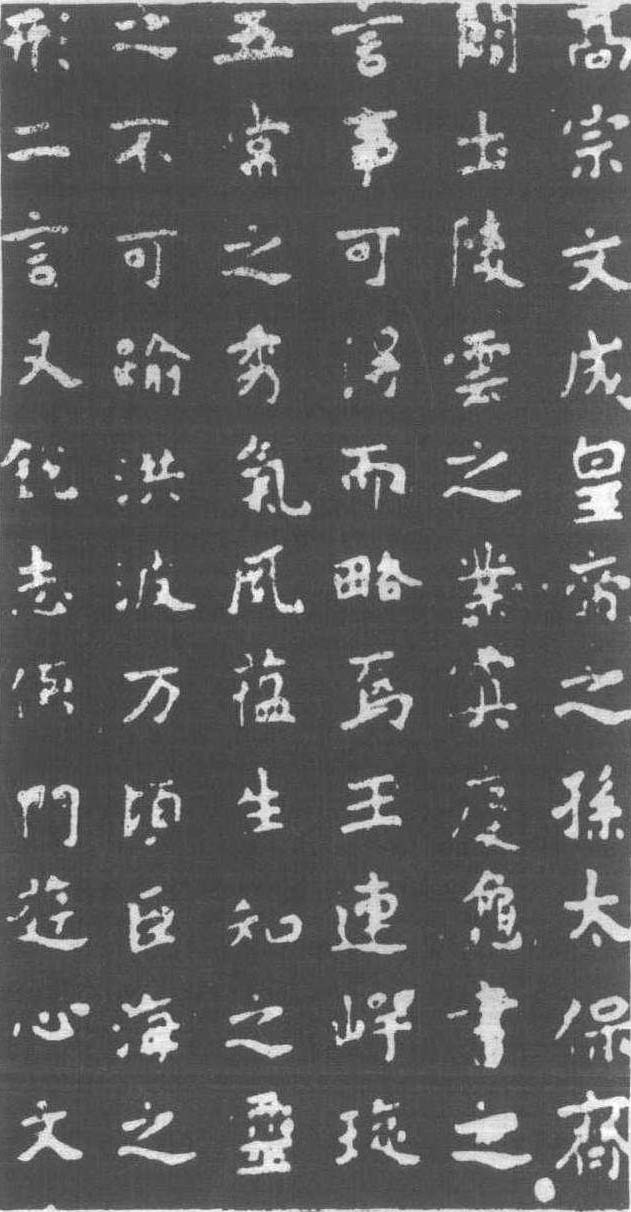 高宗文成皇帝之孫太保齊
土陵雲之業書之
言事可得而略焉王連
五常之秀氣風蘊生知之靈
之不可踰洪波万頃巨海之
形二言又銳志儒門遊心文